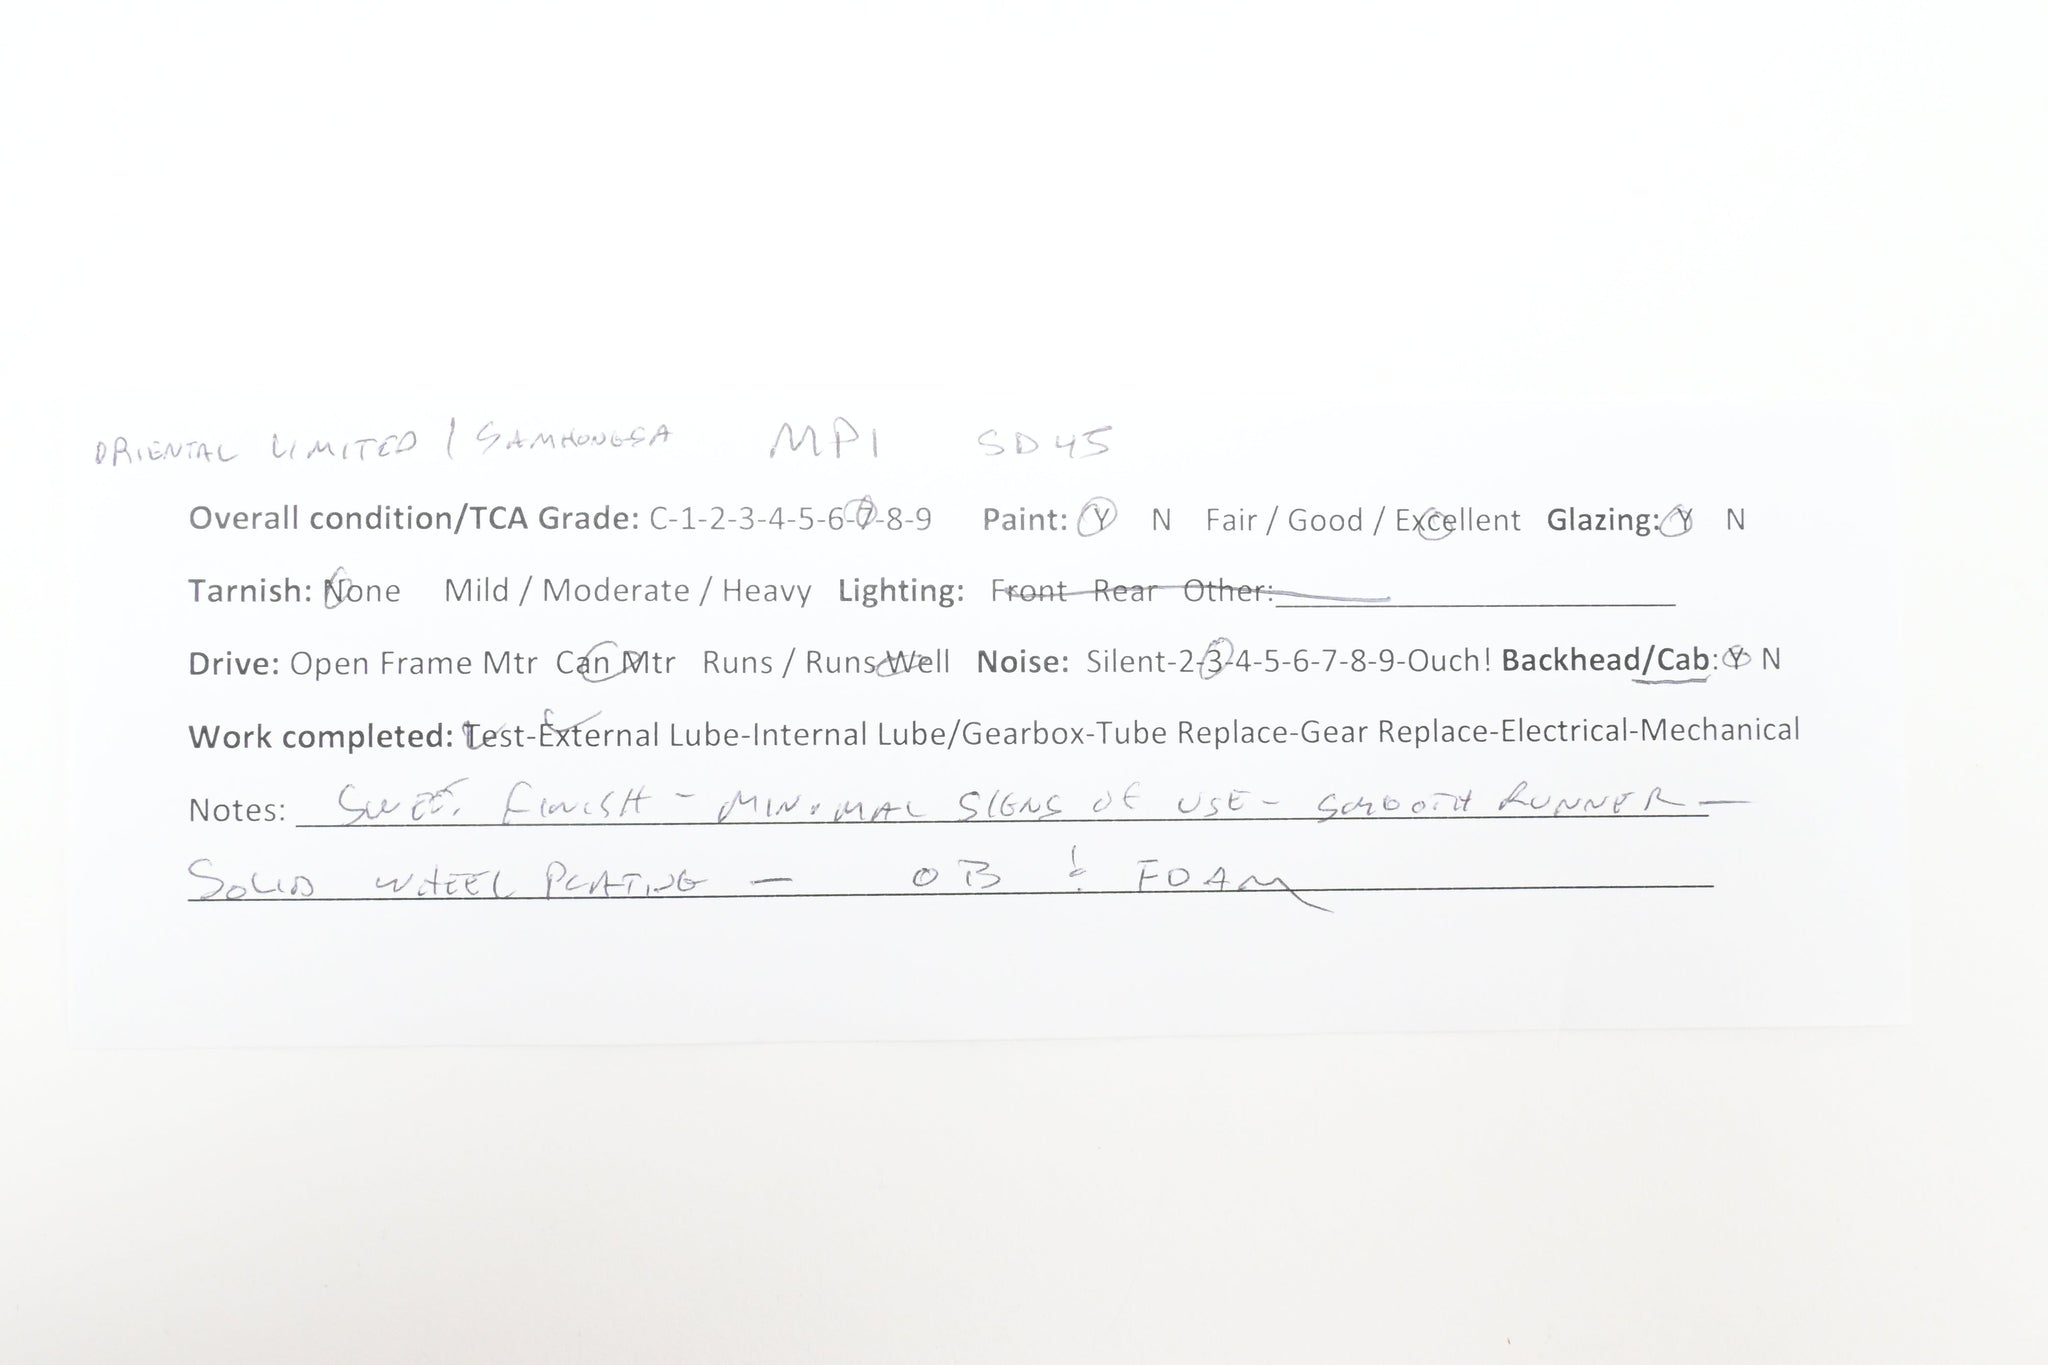 ORIENTAL LIMITED / SAMHONGSA MPI SD45
Overall condition/TCA Grade: C-1-2-3-4-5-6-7-8-9 Paint: Y N Fair / Good / Excellent Glazing: Y N
Tarnish: None Mild / Moderate / Heavy Lighting: Front Rear Other:
Drive: Open Frame Mtr Can Mtr Runs / Runs Well Noise: Silent-2-3-4-5-6-7-8-9-Ouch! Backhead/Cab: Y N
Work completed: Test-External Lube-Internal Lube/Gearbox-Tube Replace-Gear Replace-Electrical-Mechanical
Notes: SWEET FINISH - MINIMAL SIGNS OF USE - SMOOTH RUNNER -
SOLID WHEEL PLATING - OB & FOAM